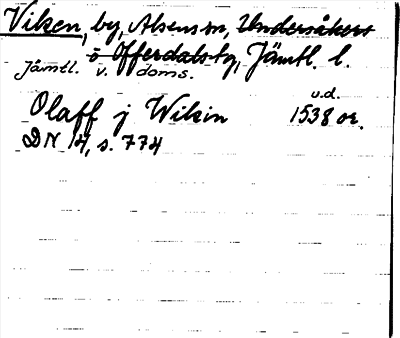 Viken, by, Alsens sn, Undersåkers
o Offerdals tg, Jämtl. l.
Jämtl. v. doms.
u.d.
Olaff j Wikin 1538 or.
DN 14, s. 774